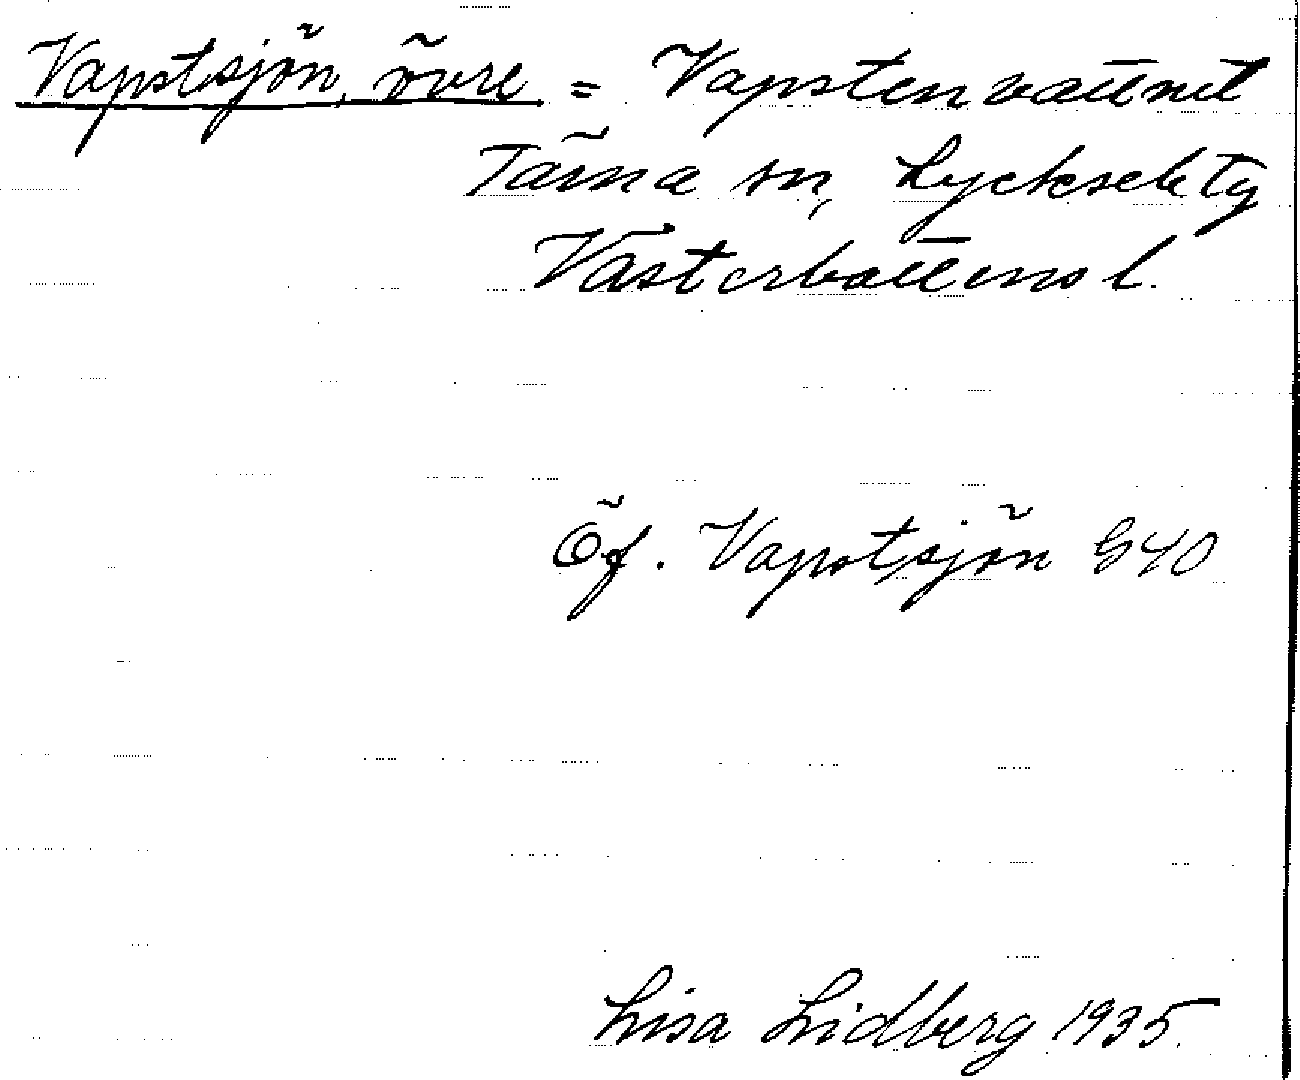 Vapstsjön, övre = Vapstenvattnet
Tärna sn, Lycksele tg
Västerbottens l.
Öf. Vapstsjön G40
Lisa Lidberg 1935.